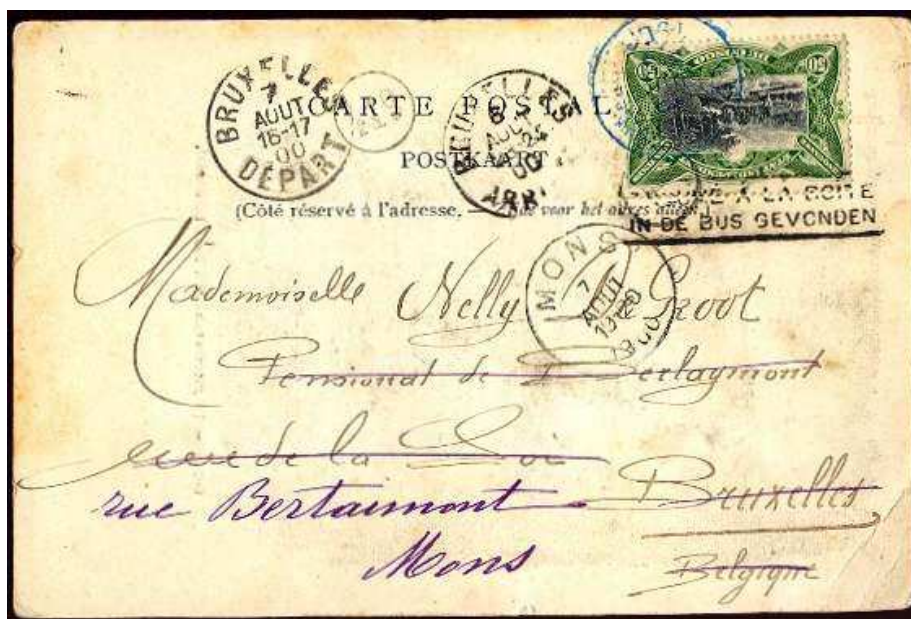 BRUXELLES
7
AOUT
16-17
00
DÉPART
CARTE POSTAL
POSTKAART
BRUXELLES
8
00
ARR
(Côté réservé à l'adresse. —
A LA BOITE
IN DE BUS GEVONDEN
MONS
7
AOUT
1900
Mademoiselle Nelly De Groot
Pensionat de Berlaymont
rue de la Loi
rue Bertaimont Bruxelles
Mons Belgique